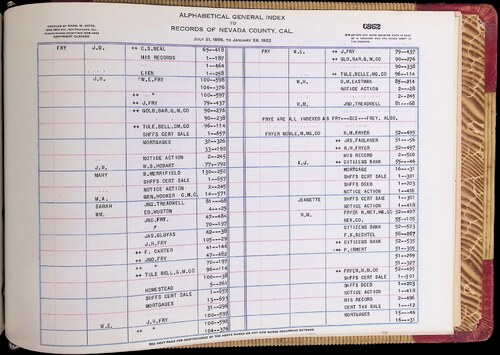 ALPHABETICAL GENERAL INDEX
TO
RECORDS OF NEVADA COUNTY, CAL.
JULY 21, 1856, TO JANUARY 28, 1922
COPYRIGHT CLAIMED
6862
FRY J.D. ++ C.S.NEAL 69--418
HIS RECORDS 1--187
1--464
LIEN 1--258
J.H. W.E.FRY 100--598
104--376
++ " 100--597
++ J.FRY 79--437
++ GOLD,BAR,Q,M,CO 90--276
90--238
++ TULE,BELL,CM,CO 96--114
SHFFS CERT SALE 1--657
MORTGAGES 32--326
33--190
NOTICE ACTION 2--245
J.W. M.S.HOBART 77--792
MARY B.MERRIFIELD 130--250
SHFFS CERT SALE 1--657
NOTICE ACTION 2--245
M.A. GEN,HOOKER G,M,CO 14--571
SARAH JNO,TREADWELL 81--68
WM. ED,HUSTON 4--25
JNO,FRY. 47--484
" 70--192
JAS,GLUYAS 42--38
J,H,FRY 105--29
++ F. CARTER 41--144
++ JNO,FRY 47--482
++ " 70--197
++ TULE BELL,G,M,CO 96--114
100--338
HOMESTEAD 5--261
SHFFS CERT SALE 1--657
MORTGAGES 13--693
31--298
100--597
W.E. J,H,FRY 100--598
++ " 104--376
FRY W.E. ++ J,FRY 79--437
++ GLD,BAR,Q,M,CO 90--276
90--338
++ TULE,BELLE,MG,CO 96--114
W.H. D.M.EASTMAN 85--214
NOTICE ACTION 2--28
2--245
W.M. JNO,TREADWELL 81--68
FRYE ARE ALL INDEXED AS FRY---SEE---FREY, ALSO.
FRYER NOBLE,M,MG,CO R.H,FRYER 52--495
++ JAS,FAULKNER 51--56
++ R.H,FRYER 52--497
HIS RECORD 2--500
E.J. ++ CITIZENS BANK 55--146
MORTGAGE 16--31
SHFFS CERT SALE 1--301
SHFFS DEED 1--203
NOTICE ACTION 1--418
JEANETTE SHFFS CERT SALE 1--301
NOTICE ACTION 1--418
R.H. FRYER N,BEY,MG,CO 52--497
NEV,CO. 55--105
CITIZENS BANK 52--523
F.K.BECHTEL 52--267
++ CITIZENS BANK 52--535
51--305
51--269
51--327
++ FRYER,M,M,CO 52--495
SHFFS CERT SALE 1--301
SHFFS DEED 1--203
NOTICE ACTION 1--418
HIS RECORD 2--496
CERT TAX SALE 1--12
MORTGAGES 15--46
16--31